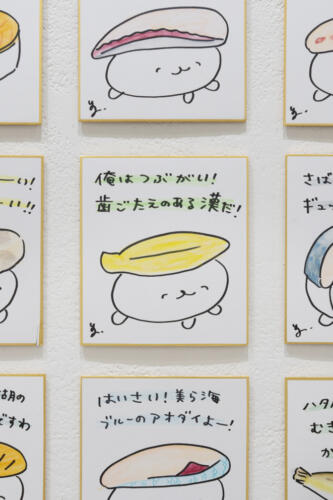 ーい!
ーい!!
俺はつぶがい!
歯ごたえのある漢だ!
さば
ギュー
湖の
ですわ
はいさい!美ら海
ブルーのアオダイよー!
ハタハ
むき
か